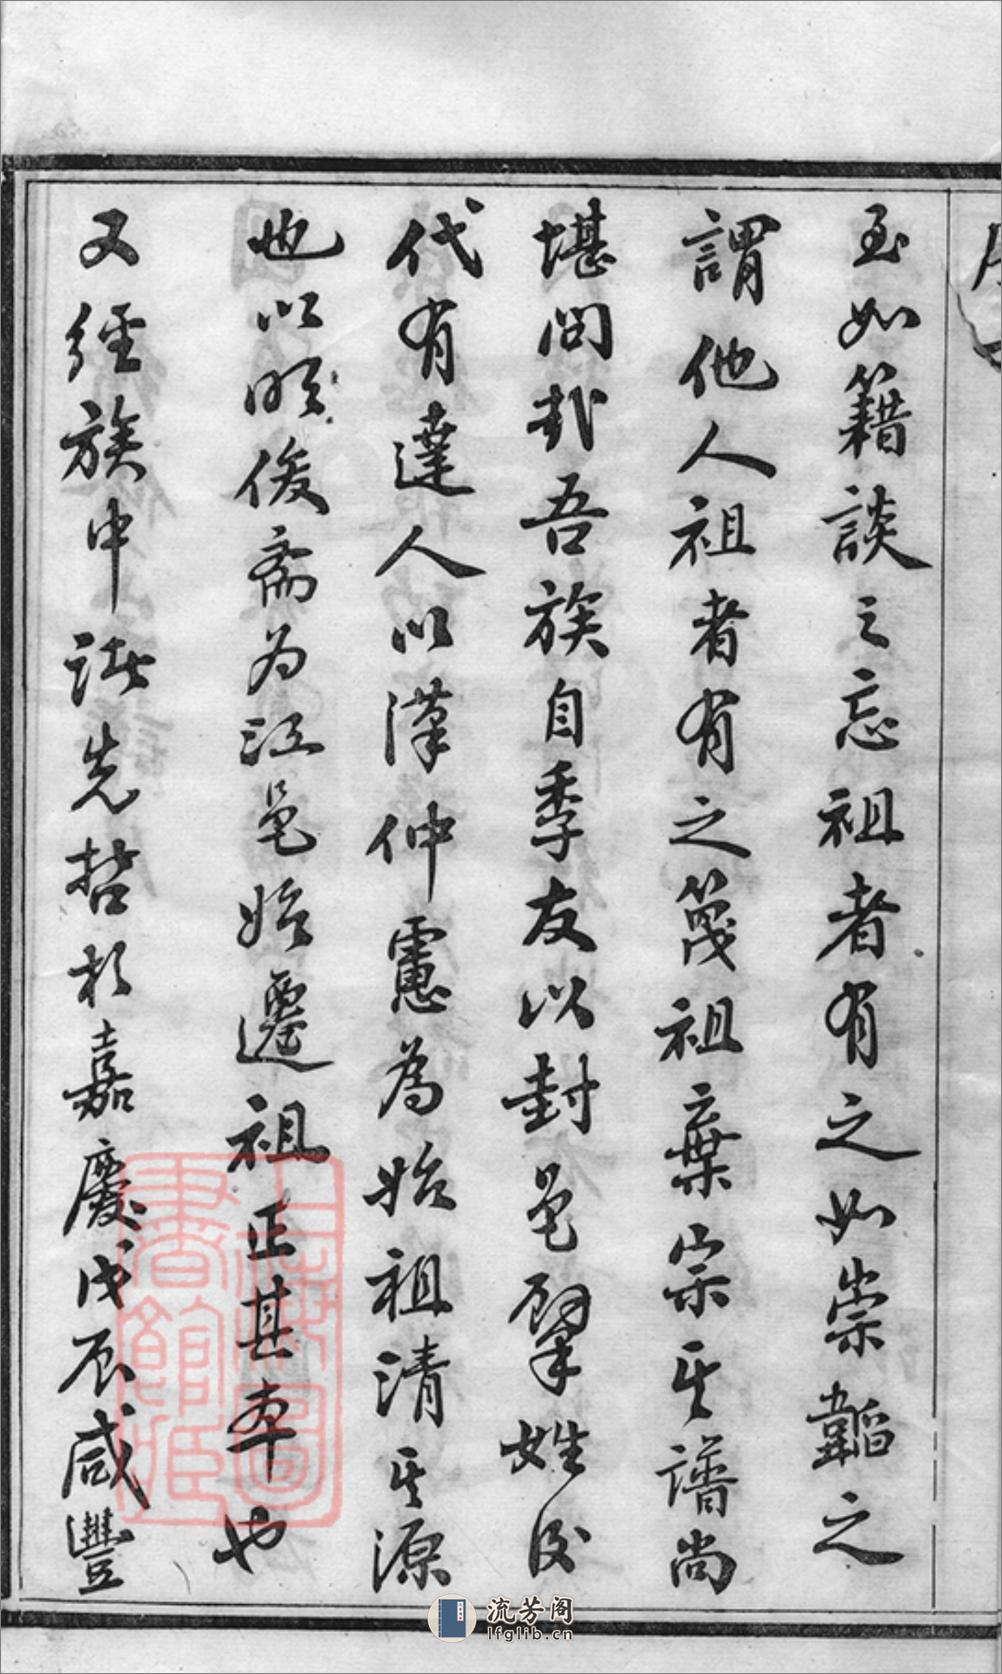 至如籍談之忘祖者有之如崇韜之
謂他人祖者有之蔑祖棄宗其譜尚
堪問哉吾族自季友以封邑肇姓後
代有達人以漢仲憲為始祖清其源
也以明俊斋为江邑始遷祖正其本也
又經族中諸先哲於嘉慶戊辰咸豐
上海圖
書館藏
流芳阁
lfglib.cn